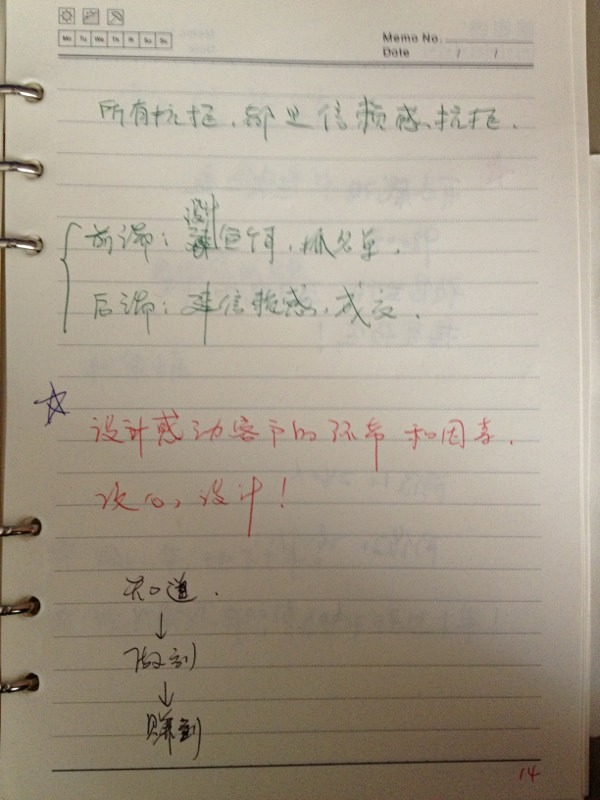 Mo Tu We Th Fr Sa Su
Memo No.
Date / /
所有抗拒,都是信赖感抗拒.
设计
前端: 鱼饵,抓名单.
后端: 建信赖感,成交.
设计感动客户的环节和因素.
设计!
知道.
↓
做到
↓
赚到
14